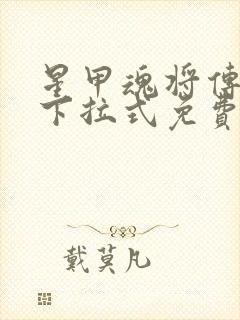 星甲魂将傳
下拉式免費
戴莫凡